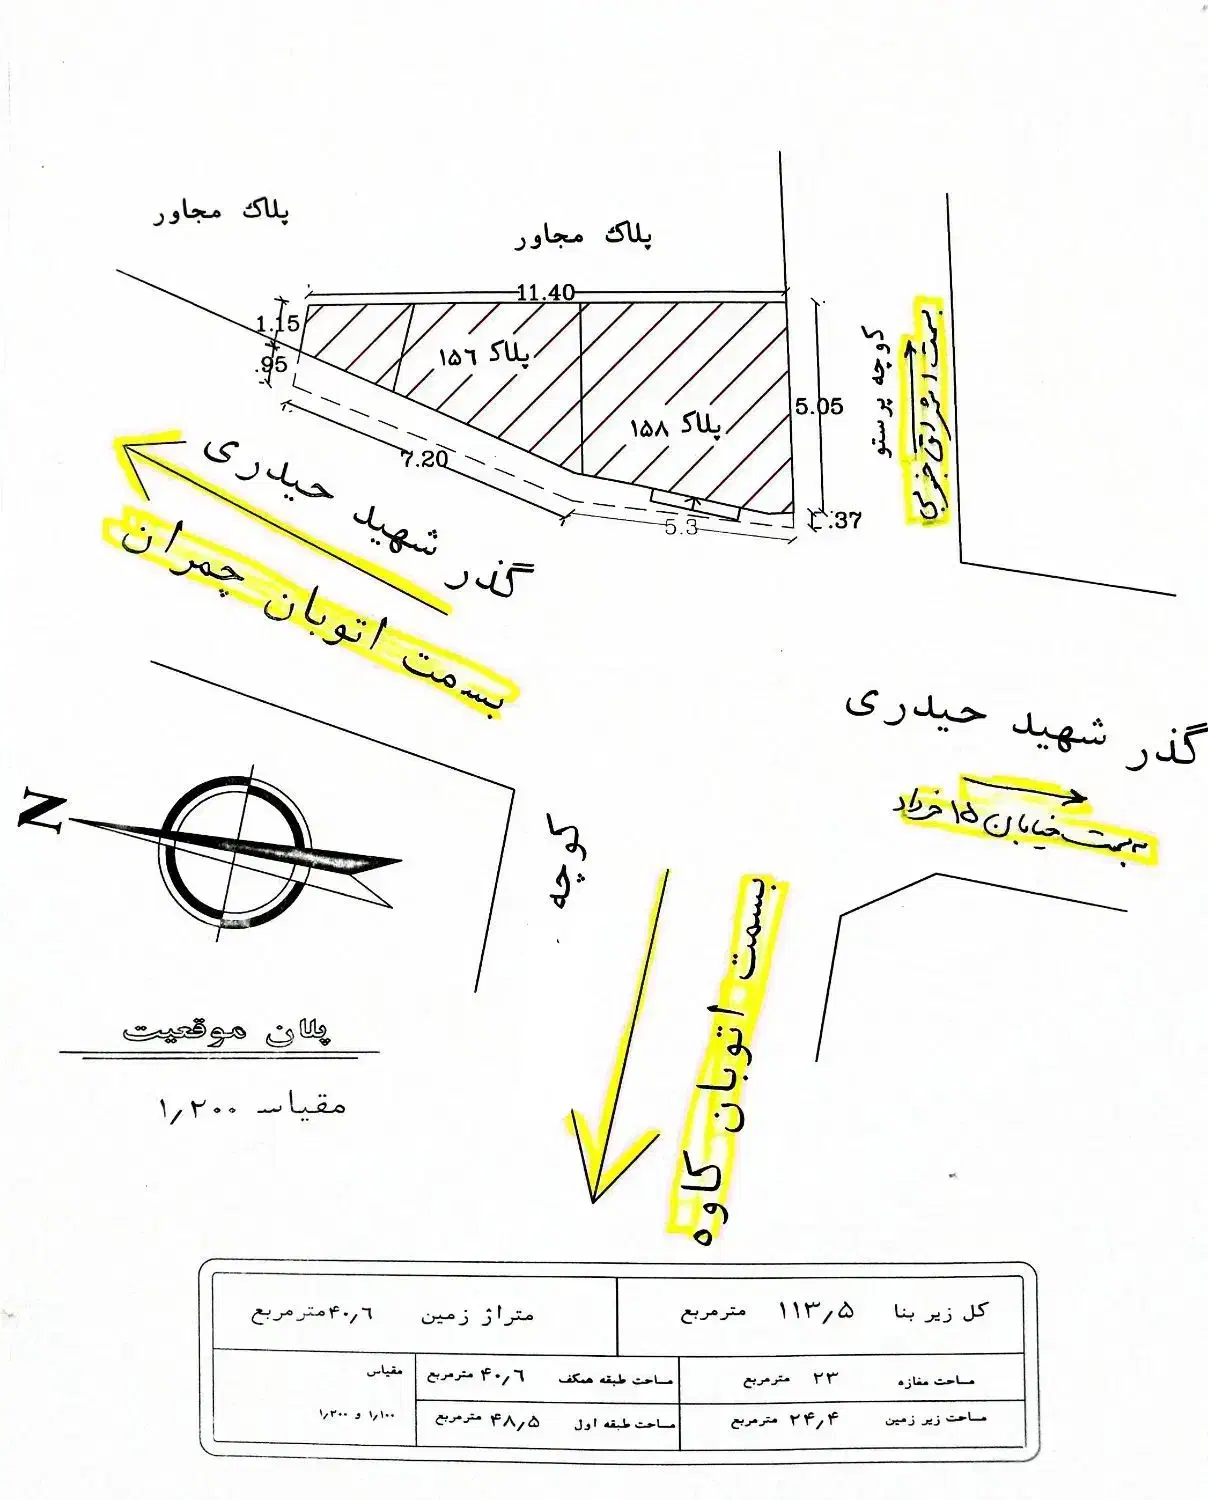 پلاک مجاور
پلاک مجاور
11.40
1.15
.95
پلاک ۱۵۶
پلاک ۱۵۸
5.05
کوچه پرستو
بسمت اشراق جنوبی
7.20
5.3
.37
گذر شهید حیدری
بسمت اتوبان چمران
گذر شهید حیدری
بسمت خیابان ۱۵ خرداد
N
کوچه
بسمت اتوبان کاوه
پلان موقعیت
مقیاس ۱/۲۰۰
کل زیر بنا ۱۱۳/۵ مترمربع
متراژ زمین ۴۰/۶ مترمربع
ساحت مغازه ۲۳ مترمربع
مساحت طبقه همکف ۴۰/۶ مترمربع
مقیاس
ساحت زیر زمین ۲۴/۴ مترمربع
مساحت طبقه اول ۴۸/۵ مترمربع
۱/۱۰۰ و ۱/۲۰۰